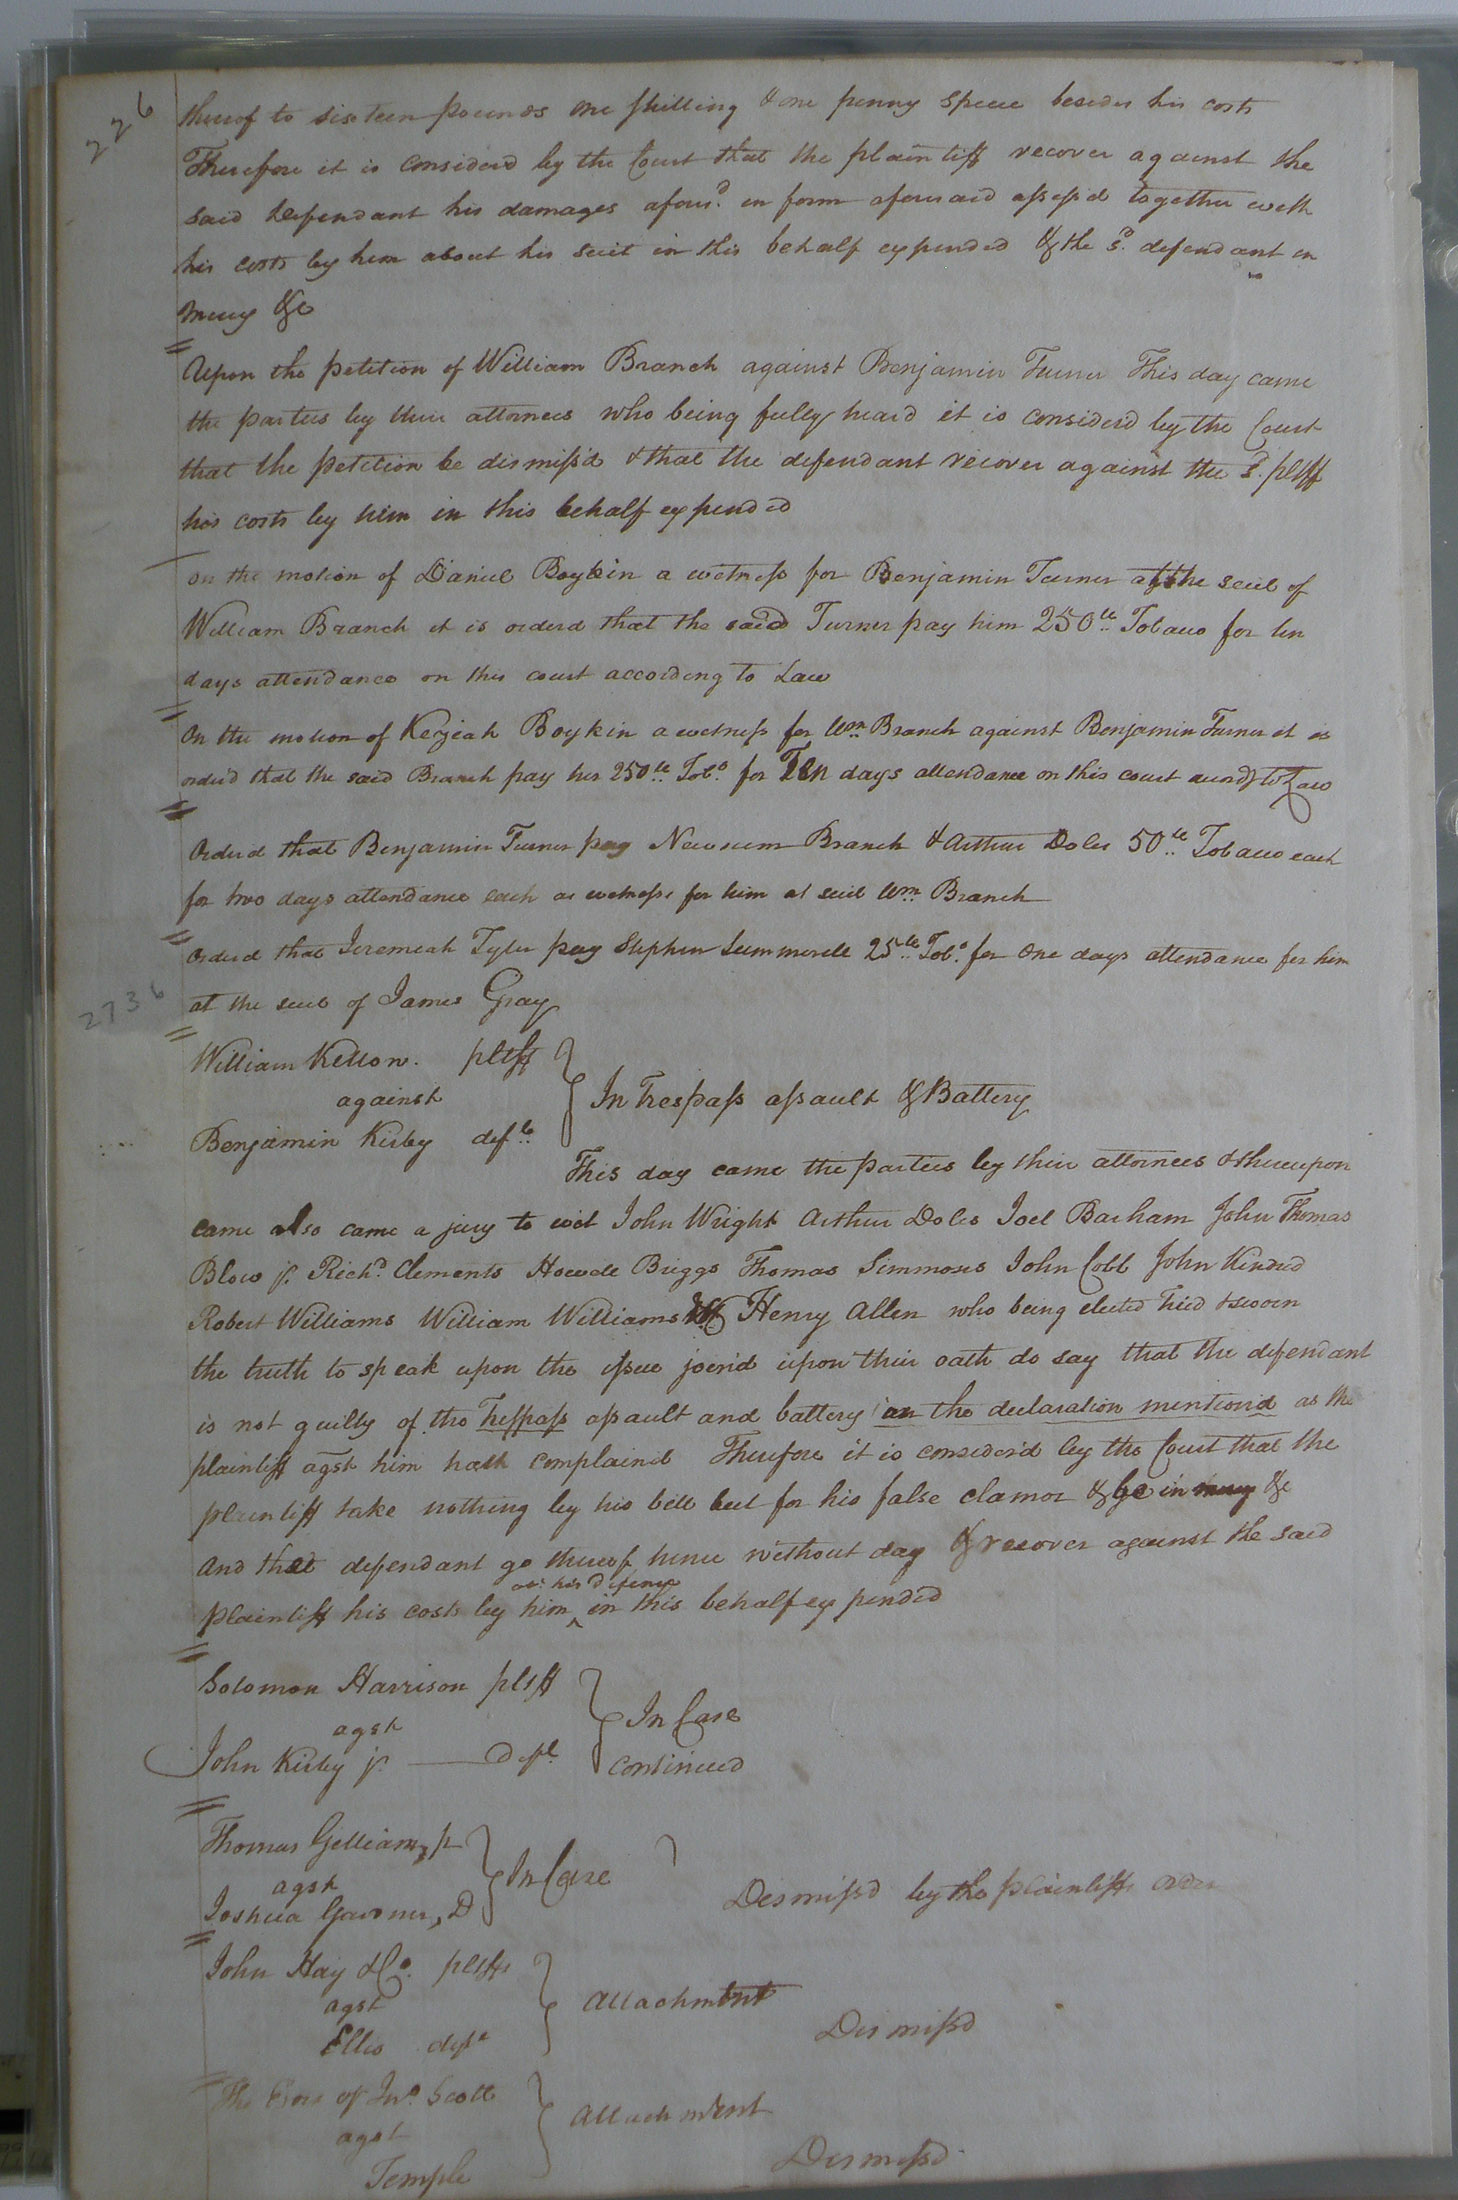 226
thereof to sixteen pounds one shilling & one penny specie besides his costs
Therefore it is considerd by the Court that the plaintiff recover against the
said defendant his damages afores.d in form aforesaid assess'd together with
his costs by him about his suit in this behalf expended & the s.d defendant in
mercy &c
Upon the petition of William Branch against Benjamin Turner This day came
the parties by their attornees who being fully heard it is considerd by the Court
that the petition be dismiss'd & that the defendant recover against the s.d pltff
his costs by him in this behalf expended
On the motion of Daniel Boykin a witness for Benjamin Turner at the suit of
William Branch it is orderd that the said Turner pay him 250 lb Tobacco for ten
days attendance on this court according to Law
On the motion of Keziah Boykin a witness for Wm. Branch against Benjamin Turner it is
order'd that the said Branch pay her 250 lb Tob.o for Ten days attendance on this court accordg to Law
Orderd that Benjamin Turner pay Newsum Branch & Arthur Doles 50 lb Tobacco each
for two days attendance each as witness for him at suit Wm. Branch
Orderd that Jeremiah Tyler pay Stephen Summerell 25 lb Tob.o for one days attendance for him
at the suit of James Gray
2736
William Kellow. pltff
against
Benjamin Kirby def.t
In Trespass assault & Battery
This day came the parties by their attornees & thereupon
came also came a jury to wit John Wright Arthur Doles Joel Barham John Thomas
Blow jr. Rich.d Clements Howell Briggs Thomas Simmons John Cobb John Kindred
Robert Williams William Williams & Henry Allen who being elected tried & sworn
the truth to speak upon the issue joind upon their oath do say that the defendant
is not guilty of the Trespass assault and battery in the declaration mentiond as the
plaintiff agst him hath complaind Therefore it is considerd by the Court that the
plaintiff take nothing by his bill but for his false clamor &c be in mercy &c
And that defendant go thereof hence without day & recover against the said
plaintiff his costs by him ^ in this behalf expended
his defence
Solomon Harrison pltff
agst
John Kirby jr. Deft.
In Case
continued
Thomas Gilliam, p
agst
Joshua Gardner, D
In Case
Dismiss'd by the plaintiffs order
John Hay & Co. pltffs
agst
Ellis deft
Attachment
Dismiss'd
The Exors of Jno. Scott
agst
Temple
Attachment
Dismiss'd